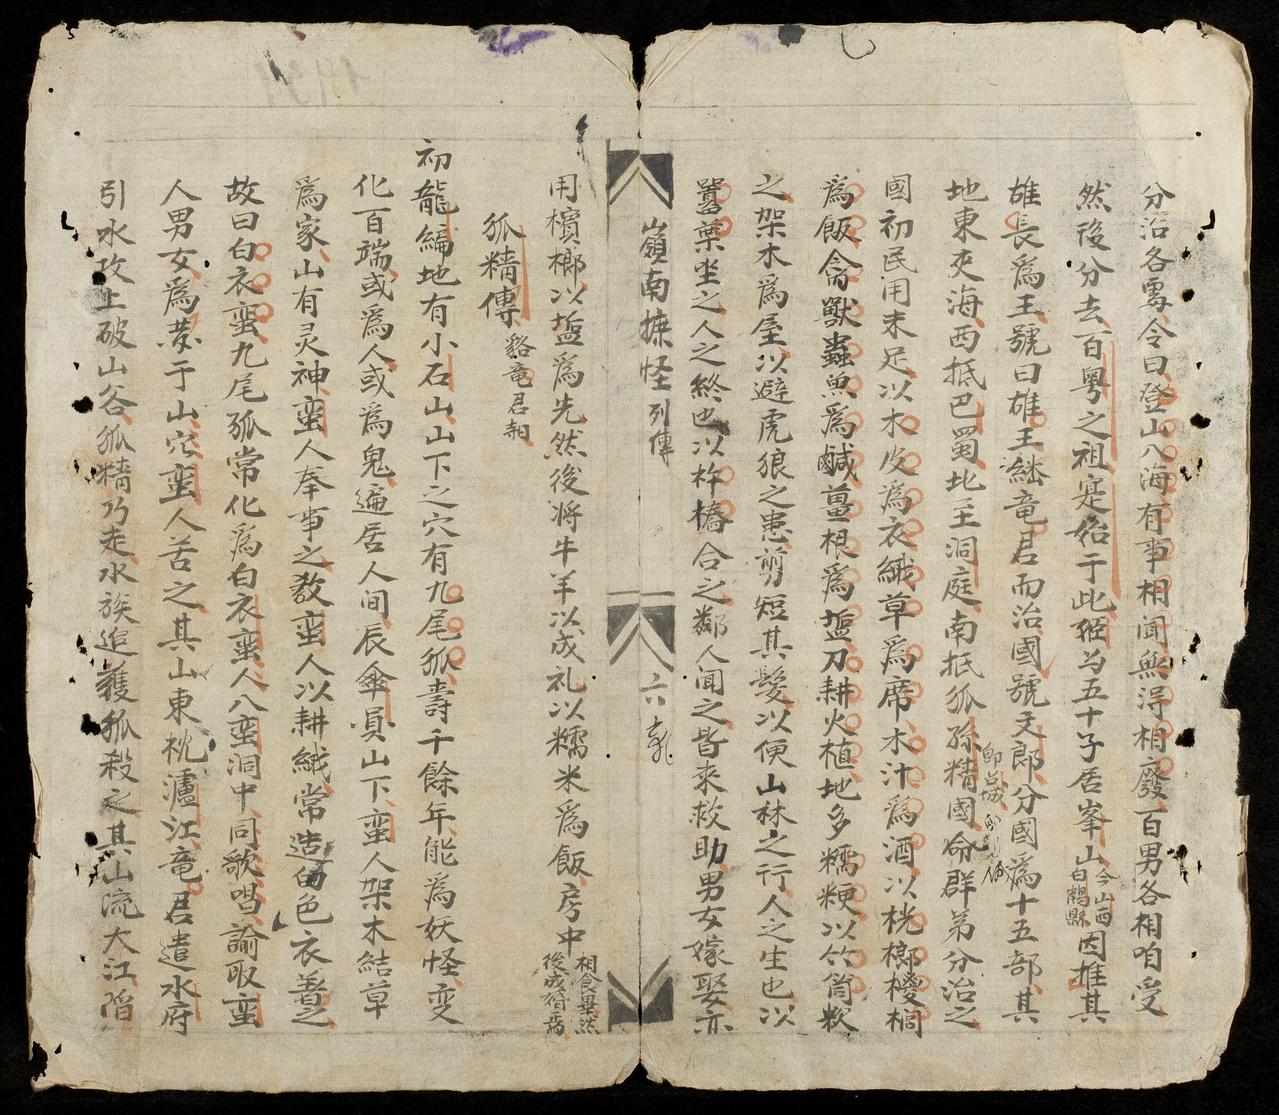 分治各寓令曰登山入海有事相聞無得相廢百男各相听受
然後分去百粤之祖寔始于此姬与五十子居峯山今山西白鶴縣因推其
雄長爲王號曰雄王繼竜君而治國號文郎分國爲十五部其
地東夾海西抵巴蜀北至洞庭南抵狐孫精國命群弟分治之
國初民用未足以木皮爲衣織草爲席木汁爲酒以桄榔椶櫚
爲飯禽獸蟲魚爲鹹薑根爲塩刀耕火植地多糯粳以竹筒炊
之架木爲屋以避虎狼之患剪短其髮以便山林之行人之生也以
蕉葉坐之人之終也以杵橋合之鄰人聞之皆来救助男女嫁娶亦
嶺南摭怪列傳 六
用檳榔以塩爲先然後将牛羊以成礼以糯米爲飯房中相食畢然後成婚焉
狐精傳 貉竜君朝
初龍編地有小石山山下之穴有九尾狐壽千餘年能爲妖怪变
化百端或爲人或爲鬼遍居人间辰傘員山下蛮人架木結草
爲家山有灵神蛮人奉事之教蛮人以耕織常造白色衣著之
故曰白衣蛮九尾狐常化爲白衣蛮人入蛮洞中同歌唱諭取蛮
人男女爲䒳于山穴蛮人苦之其山東枕瀘江竜君遣水府
引水攻上破山谷狐精乃走水族追獲狐殺之其山流大江陷